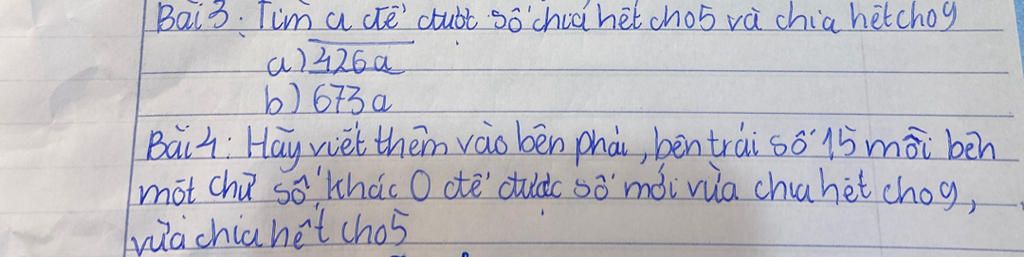 Bài 3: Tìm a để được số chia hết cho 5 và chia hết cho 9
a) 426a
b) 673a
Bài 4: Hãy viết thêm vào bên phải, bên trái số 15 mỗi bên
một chữ số khác 0 để được số mới vừa chia hết cho 9,
vừa chia hết cho 5